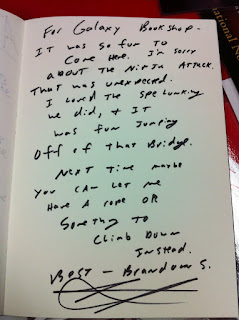 For Galaxy Bookshop -
It was so fun to
come here. I'm sorry
about the Ninja Attack.
That was unexpected.
I loved the spelunking
we did, + It
was fun jumping
off of that Bridge.
Next time maybe
you can let me
have a rope or
somethng to
climb down
instead.
Best - Brandon S.
national N